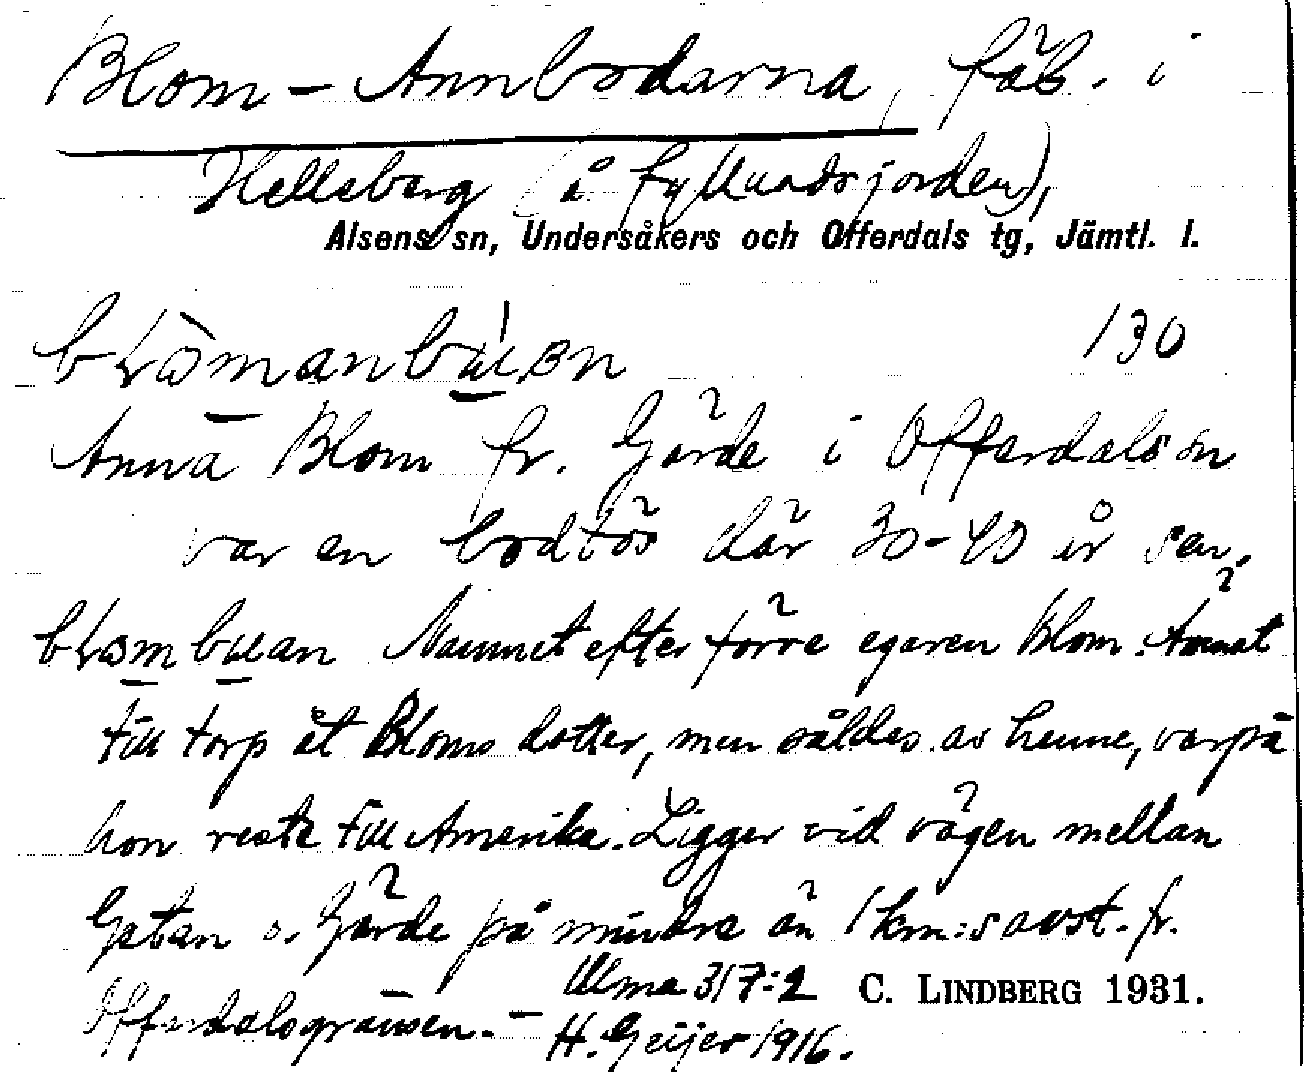 Blom-Annbodarna, fäb. i
Helleberg (å fyllnadsjorden),
Alsens sn, Undersåkers och Offerdals tg, Jämtl. l.
130
Anna Blom fr. Gärde i Offerdals sn
var en bodtös där 30-40 år sen.
Namnet efter förre egaren Blom. Ämnat
till torp åt Bloms dotter, men såldes av henne, varpå
hon reste till Amerika. Ligger vid vägen mellan
Gåtan o. Gärde på mindre än 1 km:s avst. fr.
Offerdalsgränsen. - Ulma 317:2 C. LINDBERG 1931.
H. Geijer 1916.